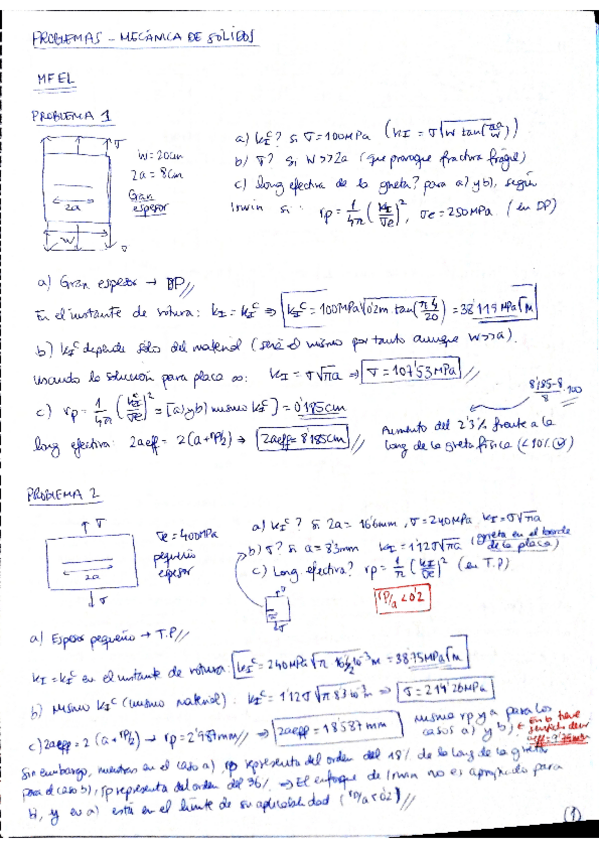 PROBLEMAS - MECÁNICA DE SÓLIDOS
MFEL
PROBLEMA 1
σ
W = 20cm
2a = 8cm
Gran
espesor
2a
W
σ
a) KIC? si σ=100MPa (KI = σ√(W tan(πa/W)))
b) σ? si W>>2a (que provoque fractura frágil)
c) long efectiva de la grieta? para a) y b), según
Irwin si: rp = 1/4π (KI/σe)², σe = 250MPa (en DP)
a) Gran espesor → DP//
En el instante de rotura: KI = KIC ⇒ KIC = 100MPa √(0'2m tan(π4/20)) = 38'119 MPa√m
b) KIC depende sólo del material (será el mismo por tanto aunque W>>a).
Usando la solución para placa ∞: KI = σ√πa ⇒ σ = 107'53MPa//
c) rp = 1/4π (KIC/σe)² = [a) y b) mismo KIC] = 0'185cm
long efectiva: 2aeff = 2(a+rp/2) ⇒ 2aeff = 8'185cm//
8'185-8/8 · 100
Aumento del 2'3% frente a la
long de la grieta física (<10%)
PROBLEMA 2
σ
2a
σ
σe = 400MPa
pequeño
espesor
a) KIC? si 2a = 16'6mm, σ=240MPa KI = σ√πa
b) σ? si a = 8'3mm KI = 1'12σ√πa (grieta en el borde
de la placa)
c) Long. efectiva? rp = 1/π (KI/σe)² (en T.P)
rp/a < 0'2
a) Espesor pequeño → T.P//
KI = KIC en el instante de rotura: KIC = 240MPa √(π 16'6/2 10⁻³ m) = 38'75MPa√m
b) Mismo KIC (mismo material): KIC = 1'12 σ √(π 8'3 10⁻³m) ⇒ σ = 214'26MPa
c) 2aeff = 2(a+rp/2) → rp = 2'987mm// ⇒ 2aeff = 19'587mm//
mismo rp y a para los
casos a) y b)
En b tiene
aeff = 9'75mm
Sin embargo, mientras en el caso a), rp representa del orden del 18% de la long de la grieta
para el caso b), rp representa del orden del 36% ⇒ El enfoque de Irwin no es apropiado para
b), y en a) está en el límite de su aplicabilidad (rp/a < 0'2)//
1